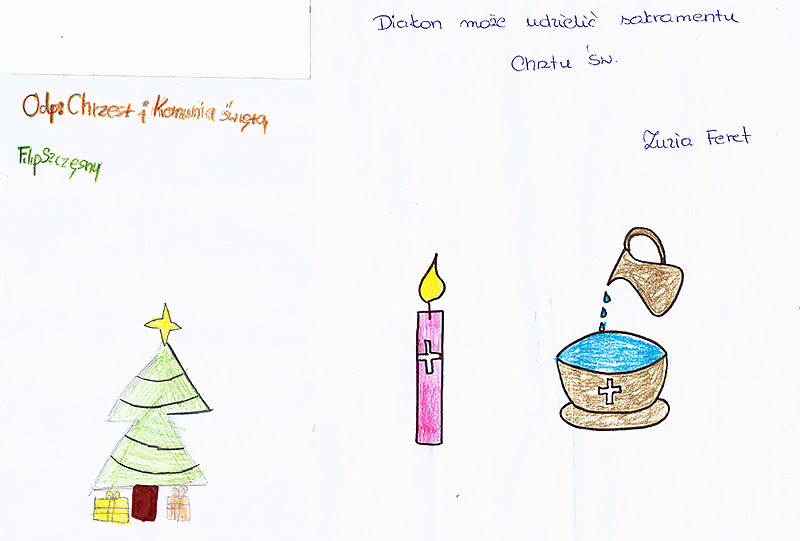 Odp: Chrzest i Komunia święta
Filip Szczęsny
Diakon może udzielić sakramentu
Chrztu św.
Zuzia Feret